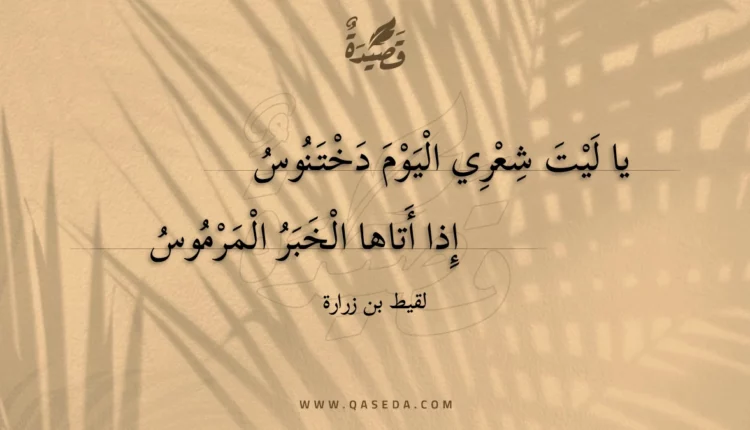 قَصِيدَةٌ
يا لَيْتَ شِعْرِي الْيَوْمَ دَخْتَنُوسُ
إِذا أَتاها الْخَبَرُ الْمَرْمُوسُ
لقيط بن زرارة
WWW.QASEDA.COM